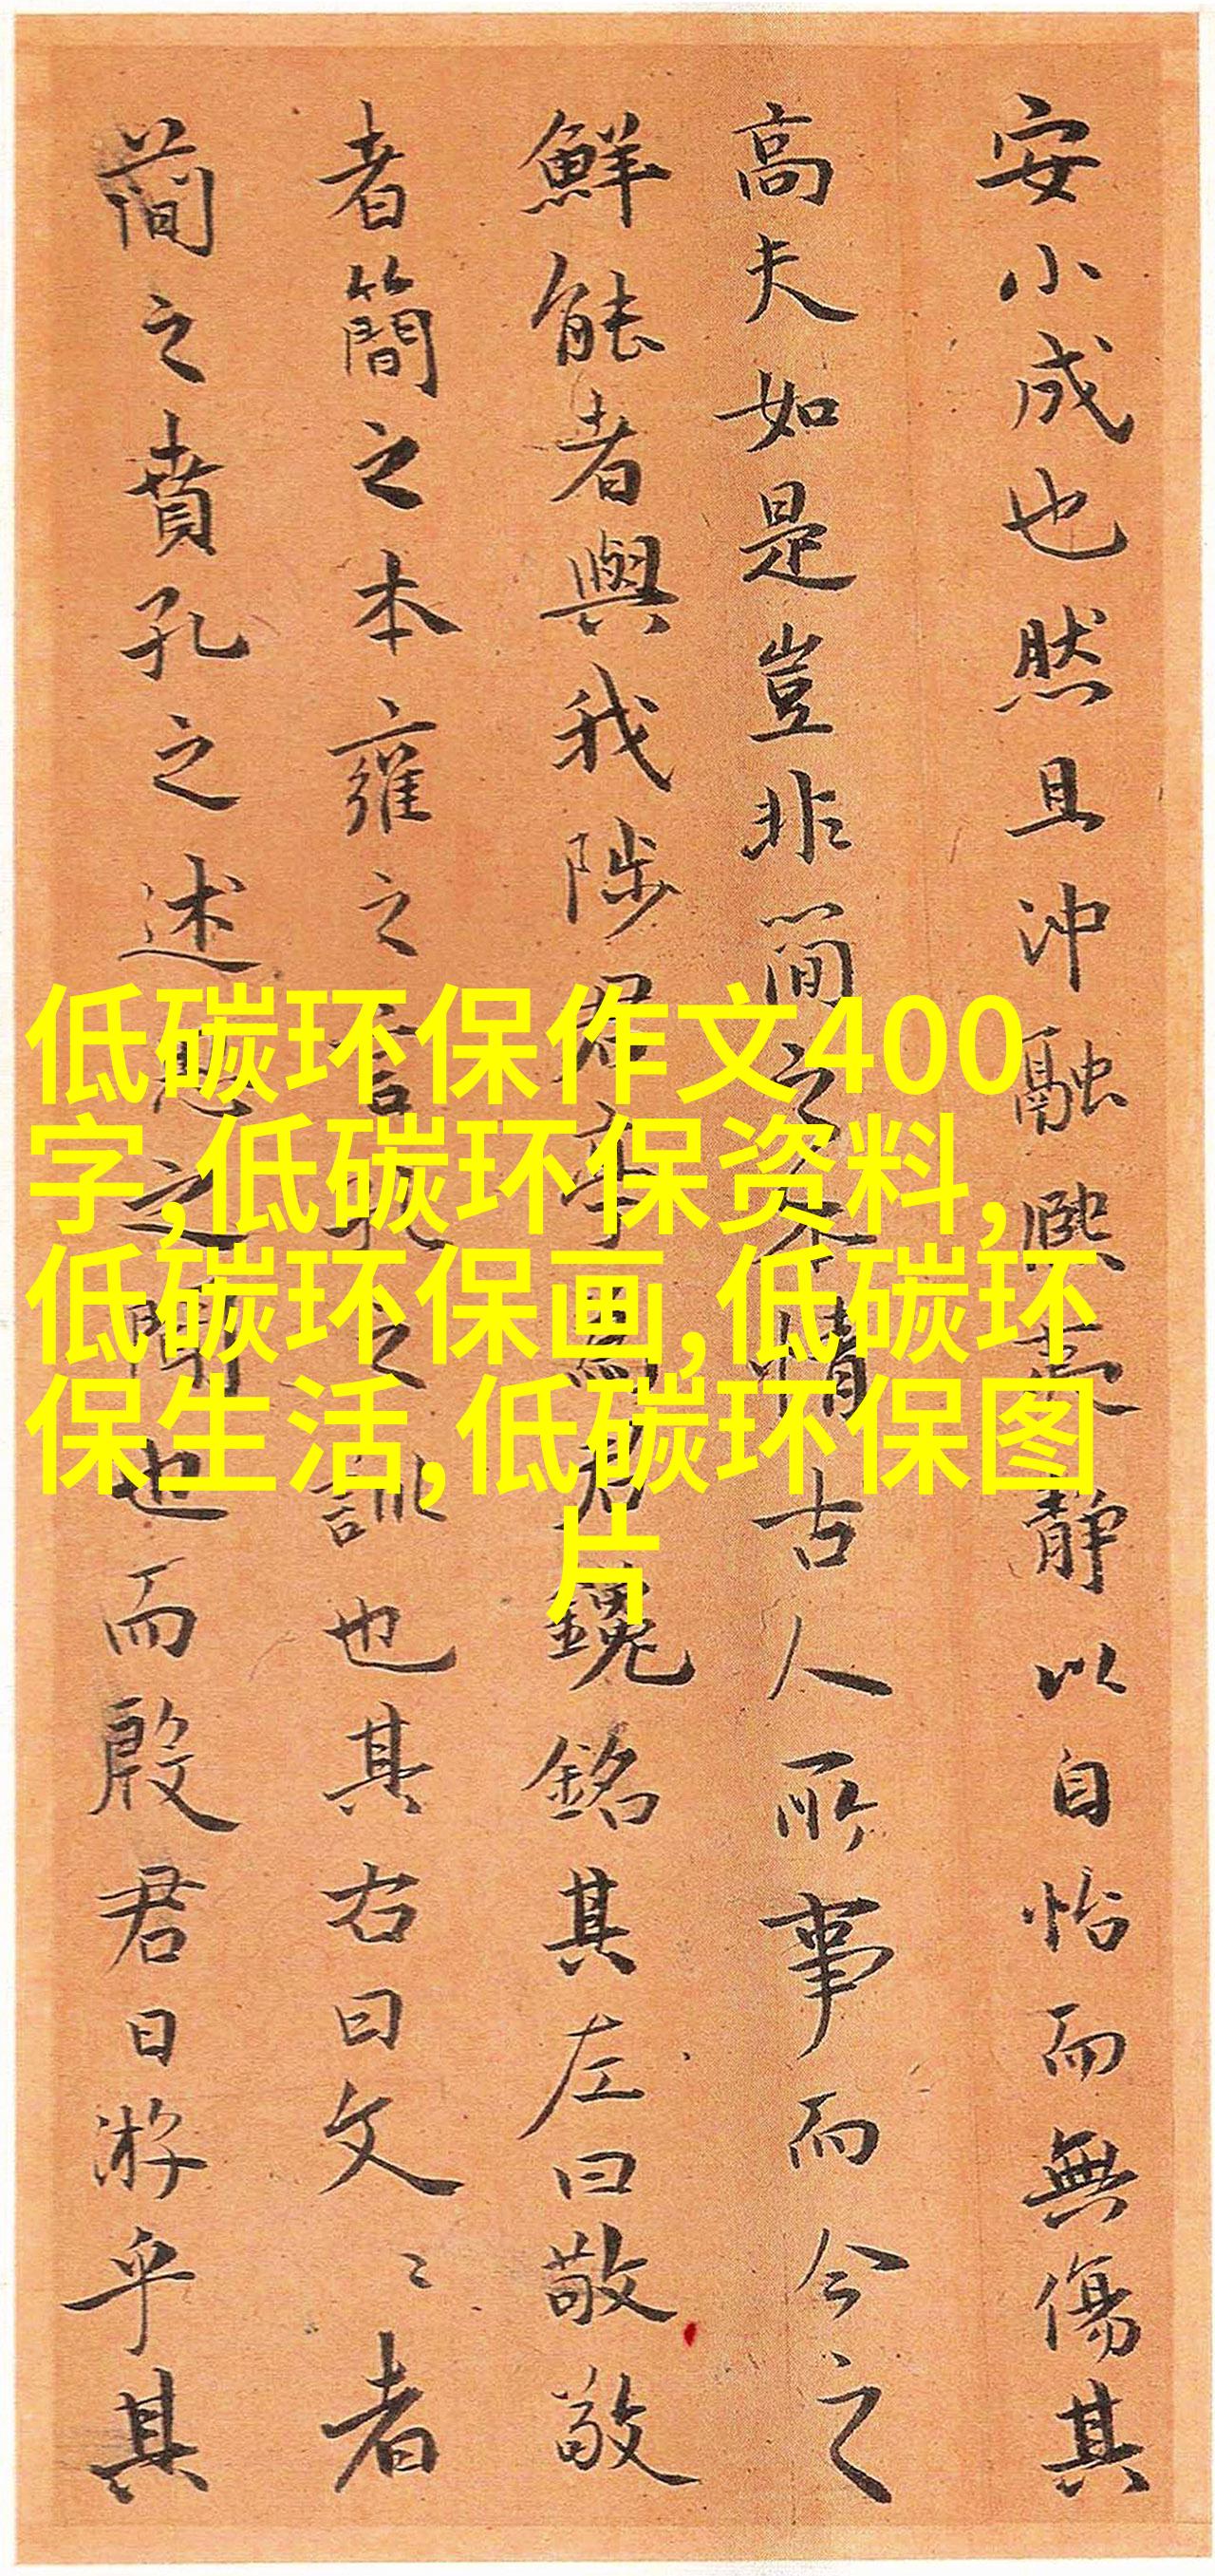 安小成也然且沖融熙靜以自怡而無傷其
高夫如是豈非簡之情古人所事而今之
鮮能者與我陟君亭君鑱銘其左曰敬敬
者簡之本雍之言孔之訓也其右曰文〻者
簡之賁孔之述之聞也而殷君日游乎其
低碳环保作文400
字,低碳环保资料,
低碳环保画,低碳环
保生活,低碳环保图
片